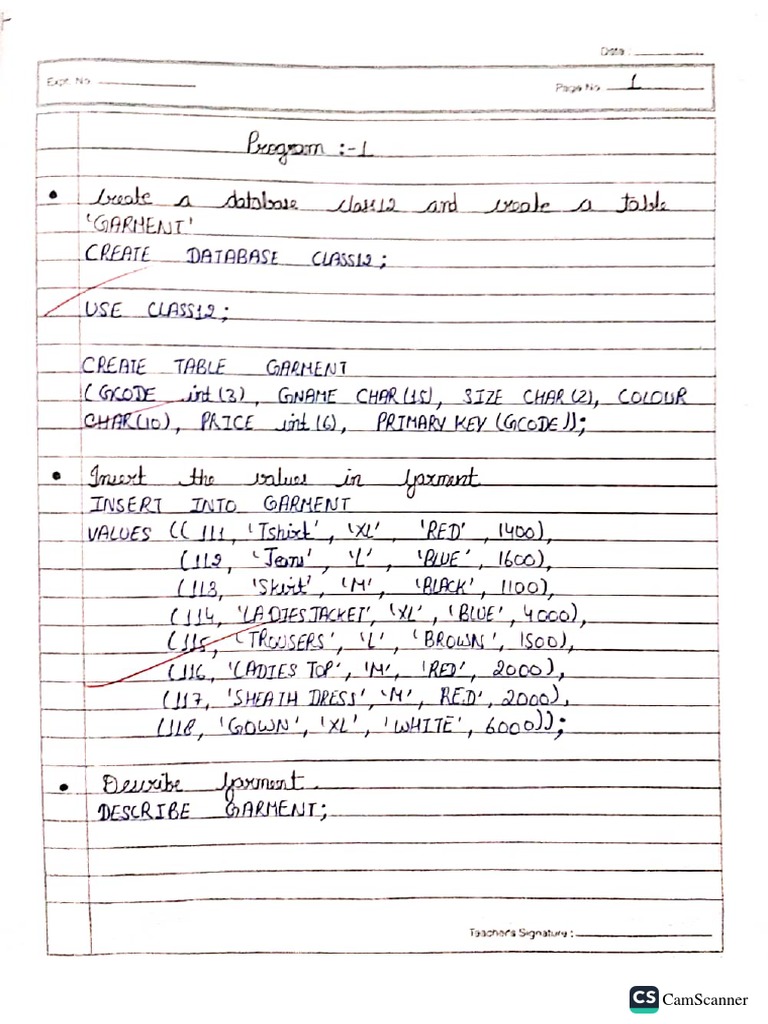 Date :
Expt. No.
Page No. 1
Program :-1
• Create a database class12 and create a table
'GARMENT'
CREATE DATABASE CLASS12;
USE CLASS12;
CREATE TABLE GARMENT
(GCODE int(3), GNAME CHAR(15), SIZE CHAR(2), COLOUR
CHAR(10), PRICE int(6), PRIMARY KEY (GCODE));
• Insert the values in garment
INSERT INTO GARMENT
VALUES ((111, 'Tshirt', 'XL', 'RED', 1400),
(112, 'Jeans', 'L', 'BLUE', 1600),
(113, 'Skirt', 'M', 'BLACK', 1100),
(114, 'LADIES JACKET', 'XL', 'BLUE', 4000),
(115, 'TROUSERS', 'L', 'BROWN', 1500),
(116, 'LADIES TOP', 'M', 'RED', 2000),
(117, 'SHEATH DRESS', 'M', RED', 2000),
(118, 'GOWN', 'XL', 'WHITE', 6000));
• Describe garment.
DESCRIBE GARMENT;
Teacher's Signature :
CS CamScanner